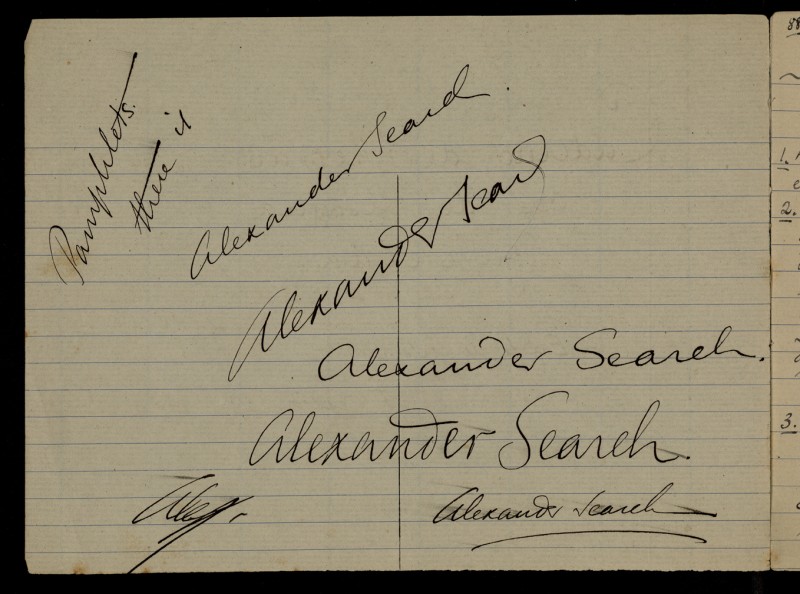 Pamphlets.
there is
Alexander Search.
Alexander Search
Alexander Search.
Alexander Search.
Alex
Alexander Search
88
1.
2.
3.